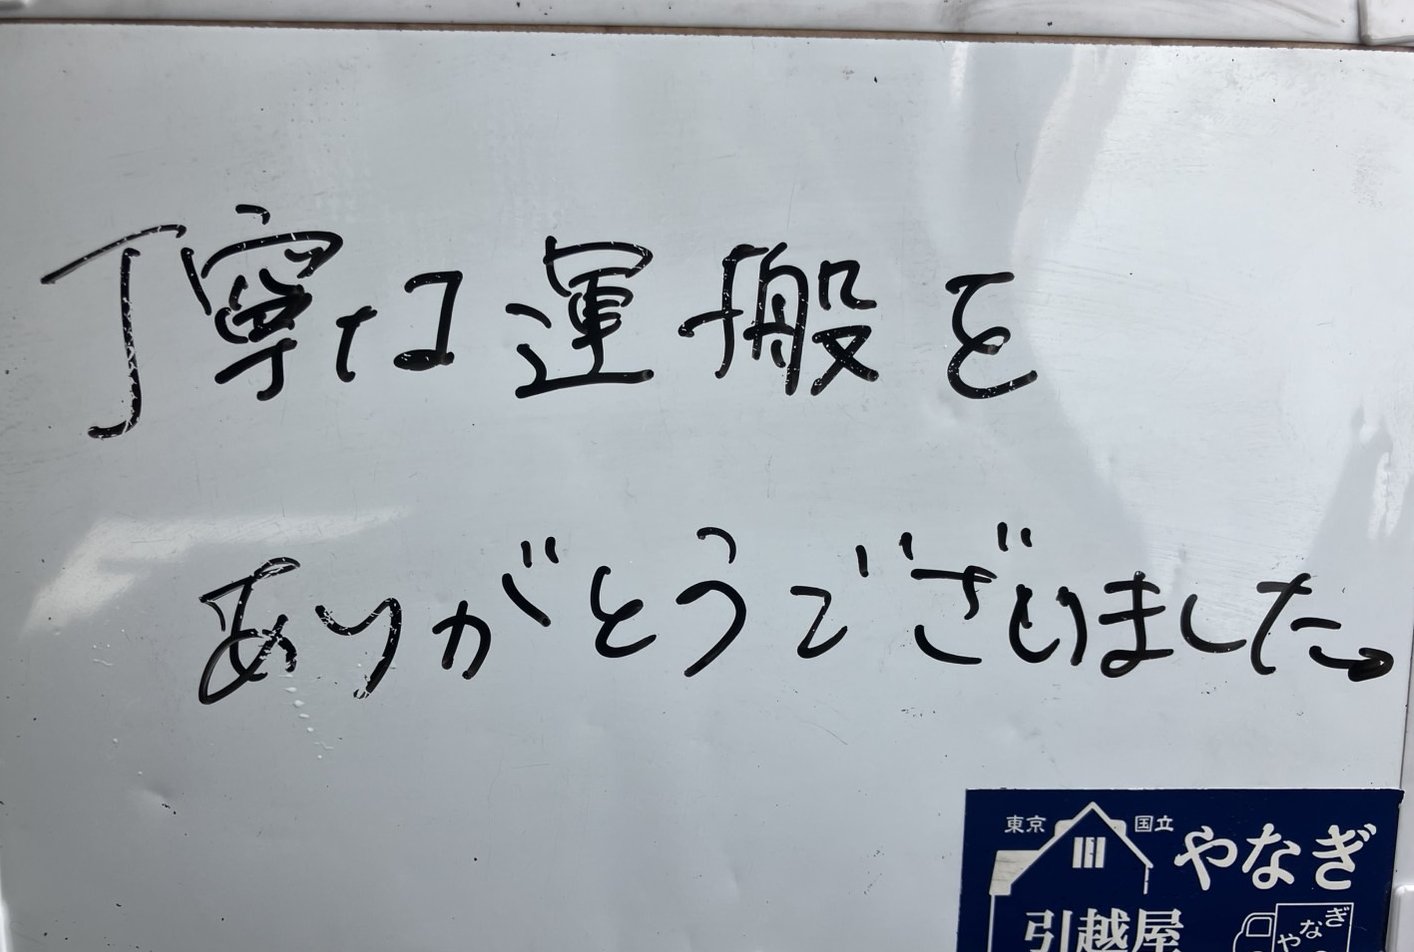 丁寧な運搬を
ありがとうございました。
東京 国立 やなぎ
引越屋
やなぎ